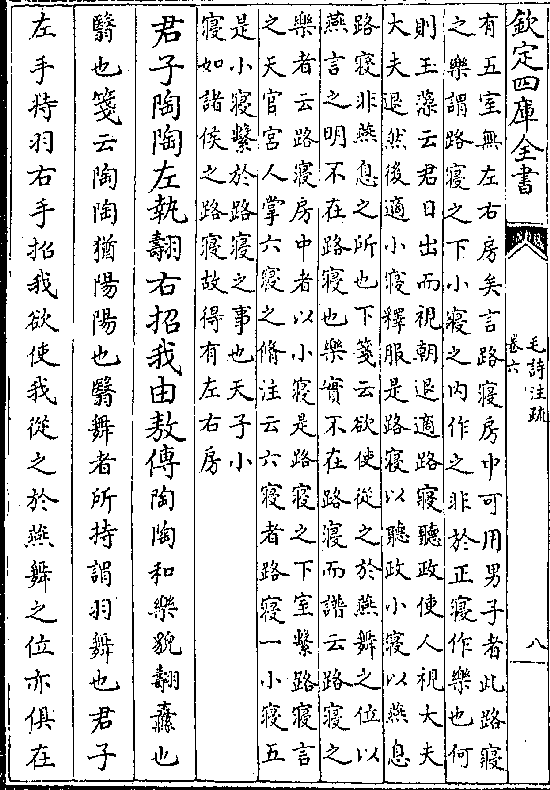 欽定四庫全書
毛詩注疏
卷六
八
有五室無左右房矣言路寢房中可用男子者此路寢
之樂謂路寢之下小寢之内作之非於正寢作樂也何
則玉藻云君日出而視朝退適路寢聽政使人視大夫
大夫退然後適小寢釋服是路寢以聽政小寢以燕息
路寢非燕息之所也下箋云欲使從之於燕舞之位以
燕言之明不在路寢也樂實不在路寢而譜云路寢之
樂者云路寢房中者以小寢是路寢之下室繫路寢言
之天官宮人掌六寢之脩注云六寢者路寢一小寢五
是小寢繫於路寢之事也天子小
寢如諸侯之路寢故得有左右房
君子陶陶左執翿右招我由敖傳陶陶和樂貌翿纛也
翳也箋云陶陶猶陽陽也翳舞者所持謂羽舞也君子
左手持羽右手招我欲使我從之於燕舞之位亦俱在